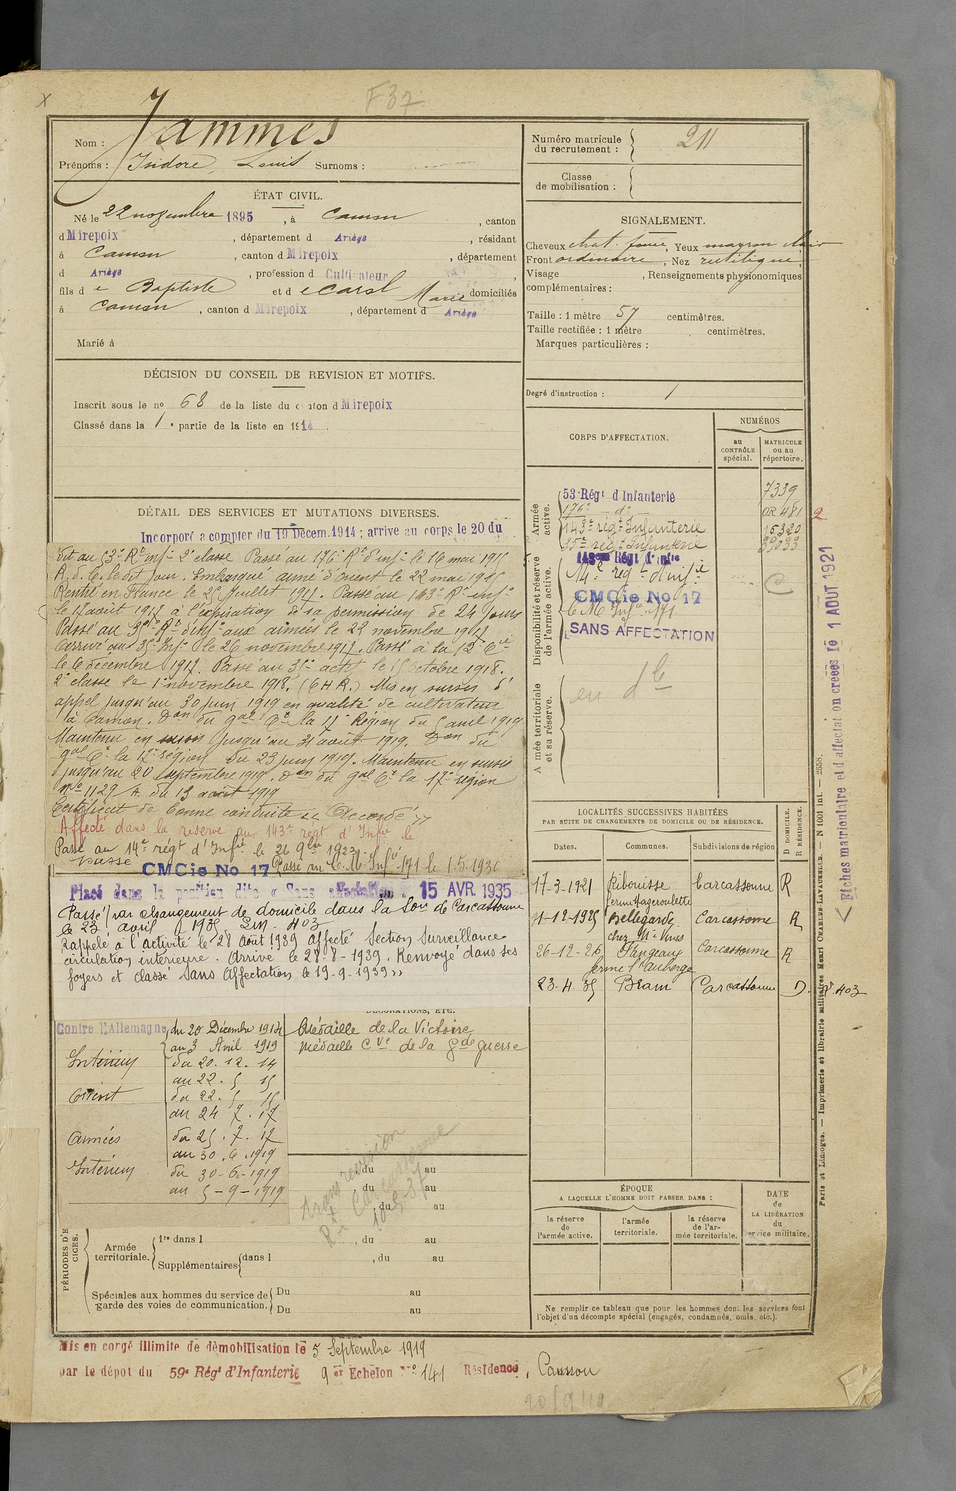 F37
Nom : Jammes
Prénoms : Isidore, Louis Surnoms :
ÉTAT CIVIL.
Né le 22 novembre 1895, à Camon, canton
d Mirepoix, département d Ariège, résidant
à Camon, canton d Mirepoix, département
d Ariège, profession d Cultivateur,
fils d e Baptiste et d e Carol Marie domiciliés
à Camon, canton d Mirepoix, département d Ariège
Marié à
DÉCISION DU CONSEIL DE REVISION ET MOTIFS.
Inscrit sous le no 68 de la liste du canton d Mirepoix
Classé dans la 1e partie de la liste en 1914
DÉTAIL DES SERVICES ET MUTATIONS DIVERSES.
Incorporé a compter du 19 Décem. 1914 ; arrive au corps le 20 du
dit au 53e Rt infie 2e classe Passé au 176e Rt d'infie le 16 mai 1915
A. d. C. le dit jour. Embarqué armée d'Orient le 22 mai 1915
Rentré en France le 25 juillet 1917. Passé au 143e Rt infie
le 12 août 1917 à l'expiration de sa permission de 24 jours
Passé au 35e Rt d'infie aux armées le 22 novembre 1917.
Arrivé au 35e Infie le 26 novembre 1917. Passé à la 12e Cie
le 6 décembre 1917. Passé au 35e actif le octobre 1918.
2e classe le 1er novembre 1918. (C H R.) Mis en sursis d'
appel jusqu'au 30 juin 1919 en qualité de cultivateur
à Camon. Don du Gal Ct la 17e Région du 5 avril 1919
Maintenu en sursis jusqu'au 31 août 1919. Don du
Gal Ct la 17e région du 23 juin 1919. Maintenu en sursis
jusqu'au 20 septembre 1919. Don du Gal Ct la 17e région
No 1129 A du 13 août 1919
Certificat de bonne conduite « Accordé »
Affecté dans la réserve au 143e regt d'Infie le
Passé au 14e régt d'Infie le 26 9bre 1923
Passé CMCie No 17 Passé au C. M. Infie 171 le 1.5.1930
Placé dans la position dite « Sans affectation » 15 AVR 1935
Passé par changement de domicile dans la Son de Carcassonne
le 23 avril 1935 403
Rappelé à l'activité le 28 août 1939 affecté Section Surveillance
circulation intérieure. Arrivé le 28-8-1939. Renvoyé dans ses
foyers et classé Sans Affectation le 19-9-1939 »
DÉCORATIONS, ETC.
Contre l'Allemagne du 20 Décembre 1914
au 3 Avril 1919
Intérieur du 20.12.14
au 22.5.15
Orient du 22.5.15
au 24.7.17
Armées du 25.7.17
au 30.6.1919
Intérieur du 30-6-1919
au 5-9-1919
Médaille de la Victoire
Médaille Cve de la Gde guerre
du au
du au
, du au
PÉRIODES D'EXERCICES.
Armée territoriale.
1re dans l , du au
Supplémentaires dans l , du au
Spéciales aux hommes du service de garde des voies de communication.
Du au
Du au
Mis en congé illimité de démobilisation le 5 Septembre 1919
par le dépot du 59e Régt d'Infanterie 9er Echelon No 141 Résidence, Camon
Numéro matricule du recrutement : 211
Classe de mobilisation :
SIGNALEMENT.
Cheveux chat. foncé, Yeux marron clair
Front ordinaire, Nez rectiligne
Visage , Renseignements physionomiques
complémentaires :
Taille : 1 mètre 57 centimètres.
Taille rectifiée : 1 mètre centimètres.
Marques particulières :
Degré d'instruction : 1
CORPS D'AFFECTATION.
NUMÉROS
au CONTRÔLE spécial.
MATRICULE ou au répertoire.
Armée active.
53e Régt d Infanterie 7339
176e - do - OR 481
143e rég. Infanterie 15320
35e rég. Infanterie
Disponibilité et réserve de l'armée active.
143e Régt d'Infie
14e regt d'infie
CMCie No 17
C. M. Infie 171
SANS AFFECTATION
Armée territoriale et sa réserve.
LOCALITÉS SUCCESSIVES HABITÉES
PAR SUITE DE CHANGEMENTS DE DOMICILE OU DE RÉSIDENCE.
Dates. Communes. Subdivisions de région D. DOMICILE. R. RÉSIDENCE.
17-3-1921 Ribouisse Carcassonne R
11-12-1925 Bellegarde Carcassonne R
26-12-26 Fanjeaux Carcassonne R
23-4-35 Bram Carcassonne D. No 403
ÉPOQUE
A LAQUELLE L'HOMME DOIT PASSER DANS :
la réserve de l'armée active.
l'armée territoriale.
la réserve de l'armée territoriale.
DATE de LA LIBÉRATION du service militaire.
Ne remplir ce tableau que pour les hommes dont les services font
l'objet d'un décompte spécial (engagés, condamnés, omis, etc.).
Fiches matriculaire et d'affectation créées le 1 AOUT 1921
Paris et Limoges. — Imprimerie et librairie militaires Henri CHARLES-LAVAUZELLE. — N 1001 int. — 2558.